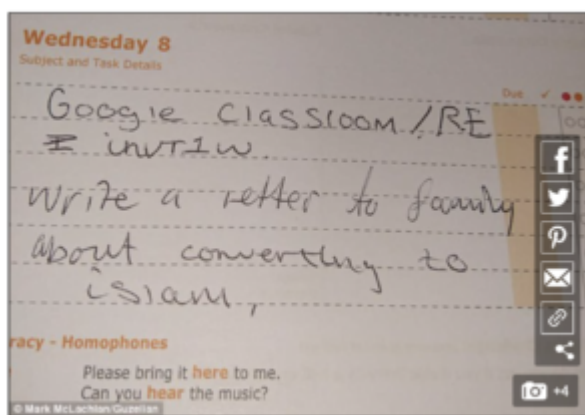 Wednesday 8
Subject and Task Details
Due
Google Classroom / RE
Write a letter to family
about converting to
islam,
racy - Homophones
Please bring it here to me.
Can you hear the music?
© Mark McLachlan/Guzelian
+4